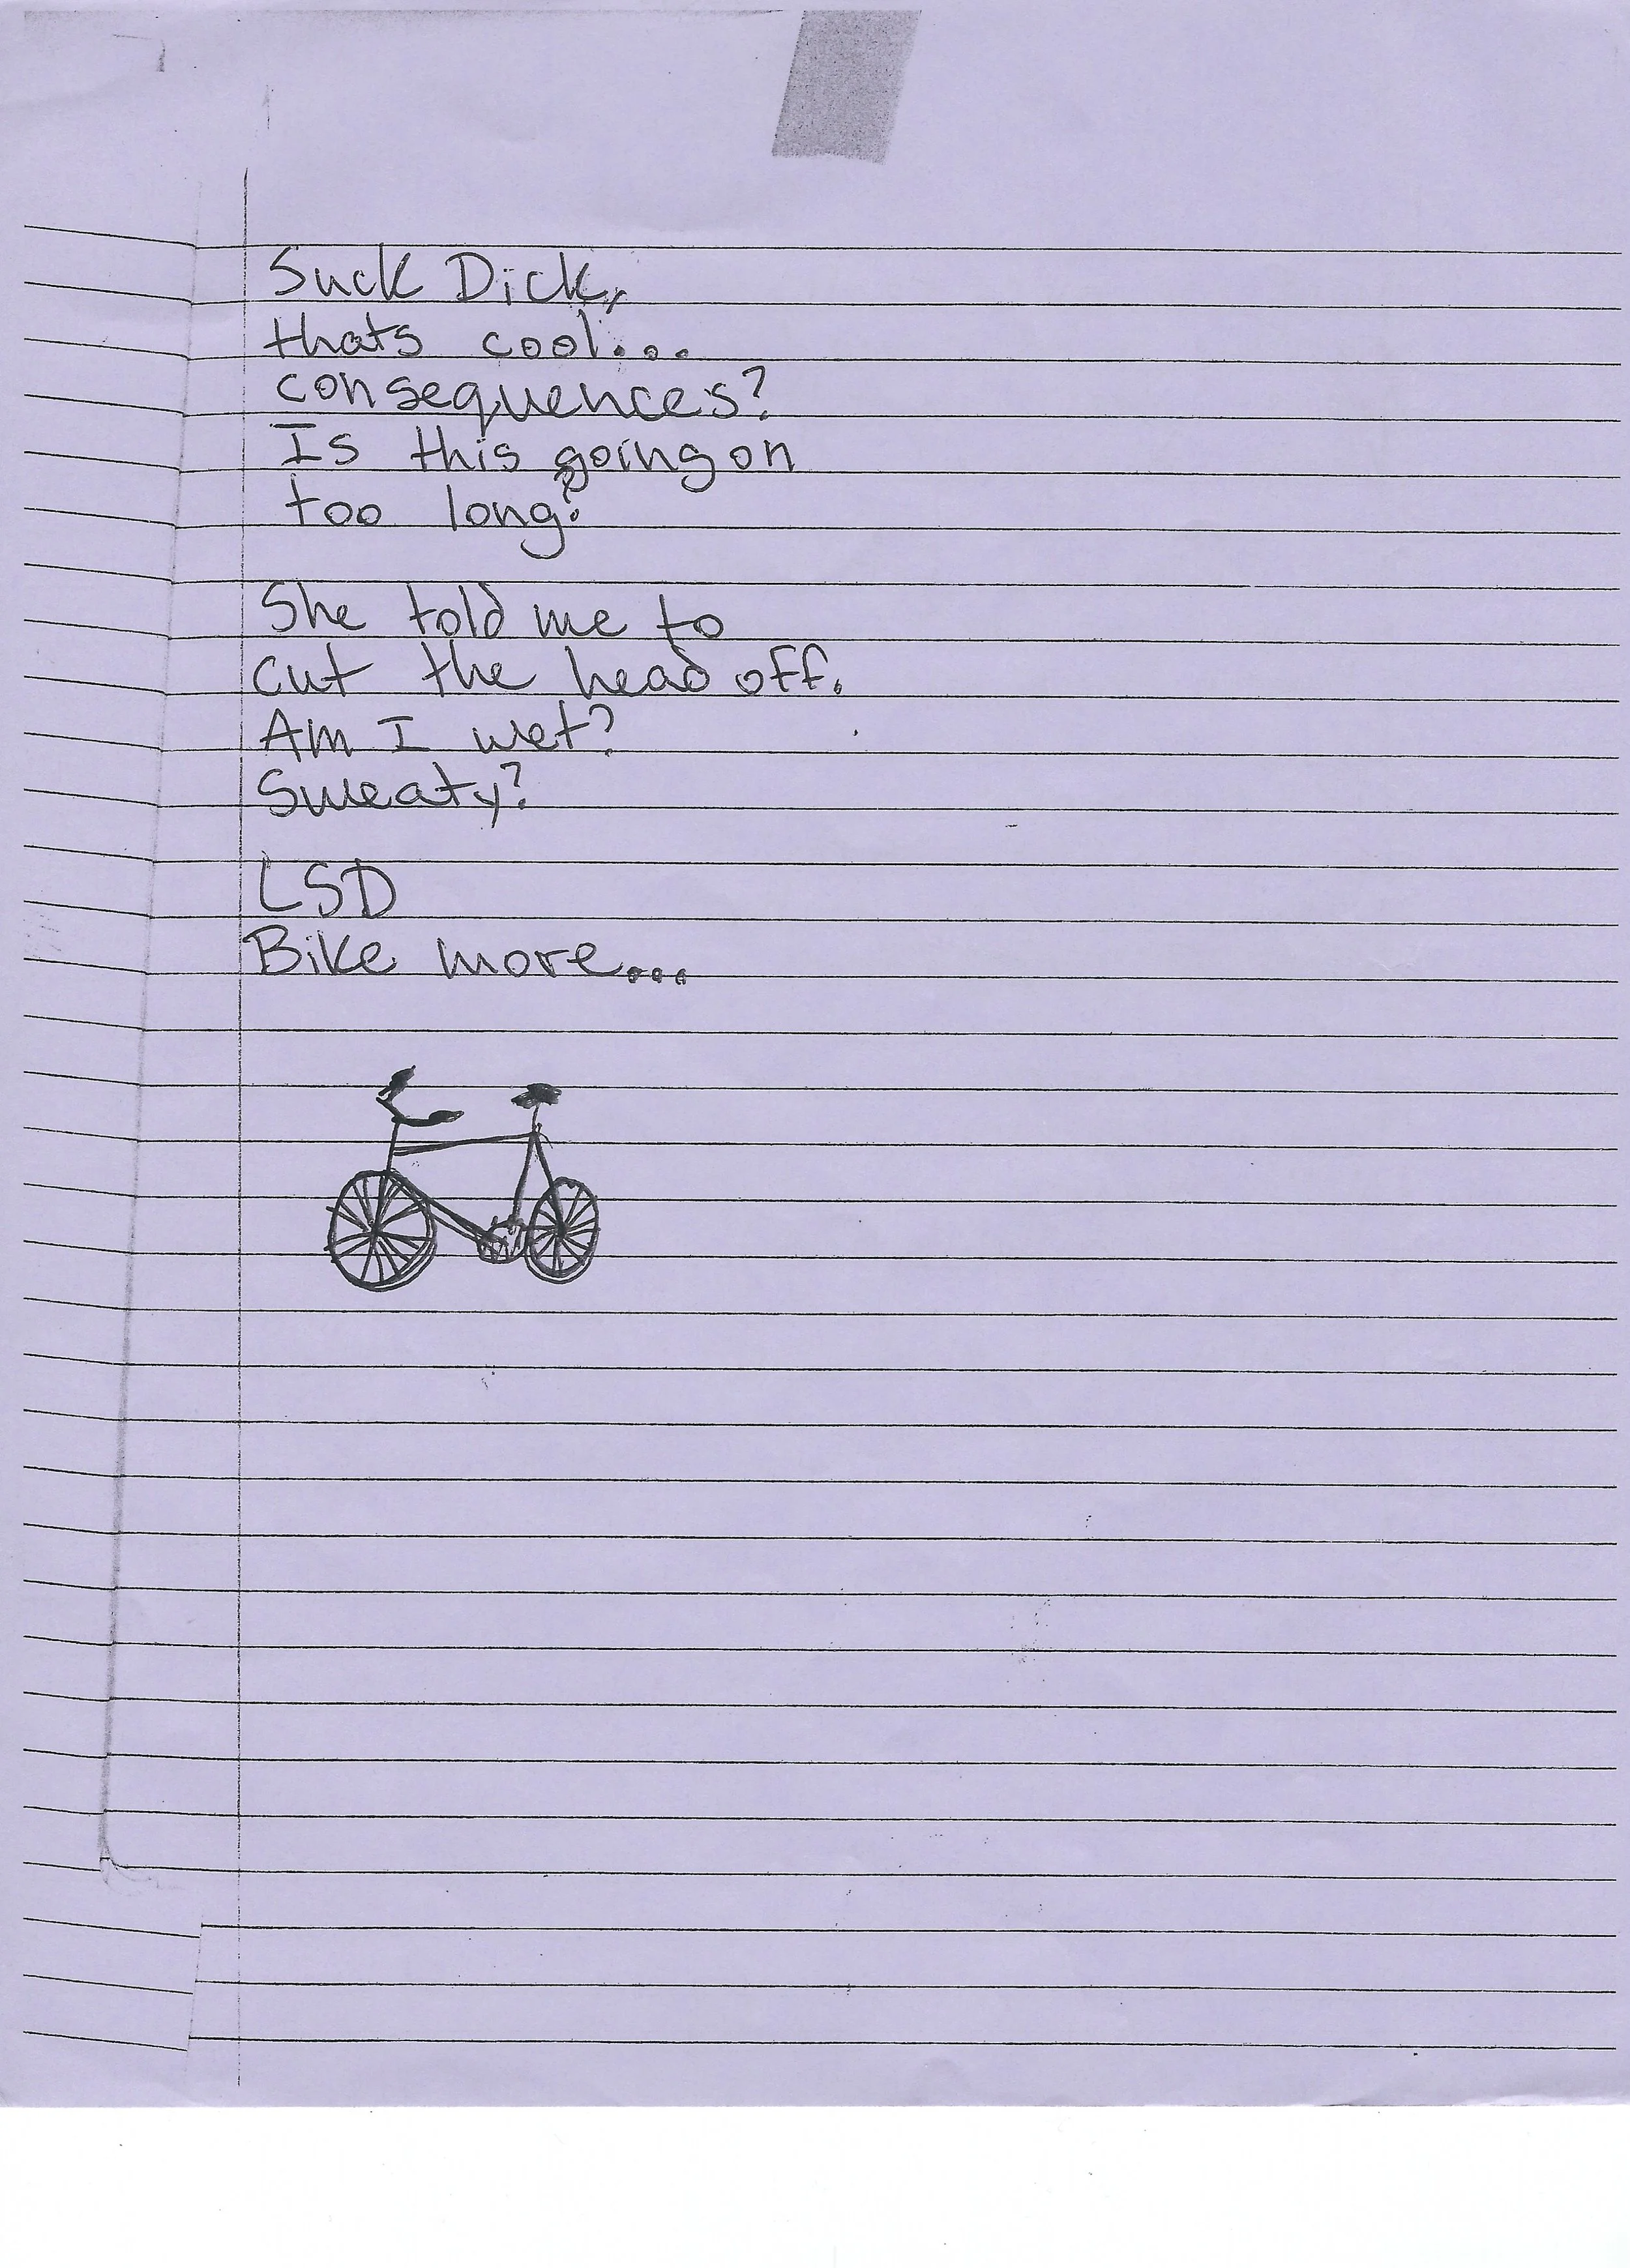 Suck Dick,
thats cool...
consequences?
Is this going on
too long?
She told me to
cut the head off.
Am I wet?
Sweaty?
LSD
Bike more...